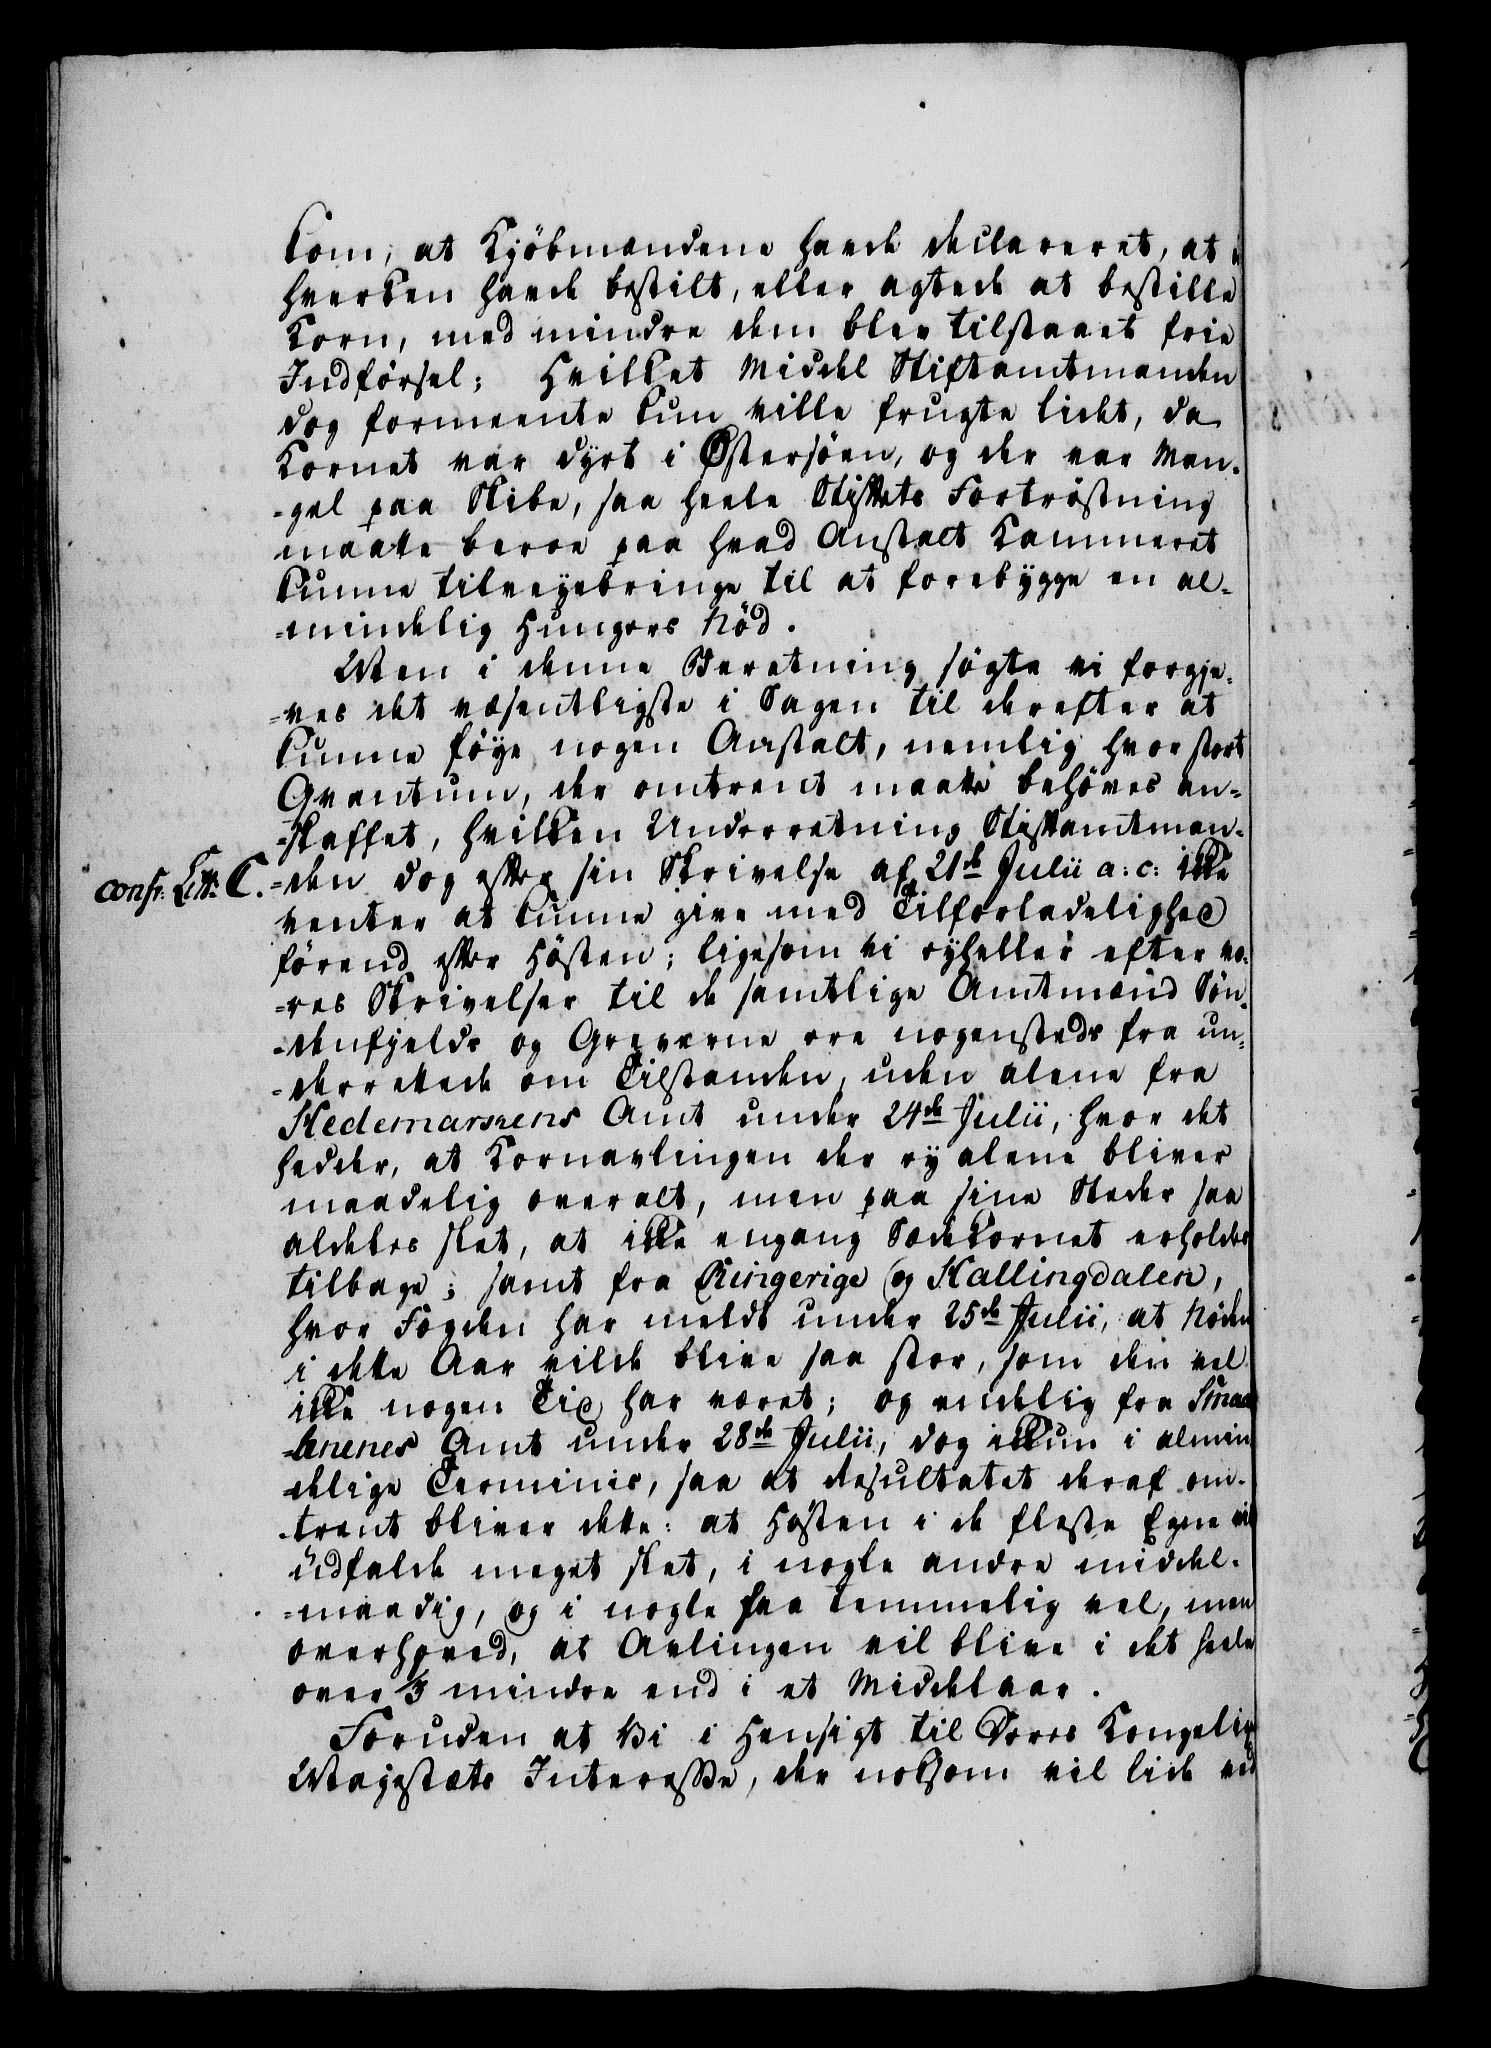 kom, at Kjöbmændene havde declareret, at i
hverken havde bestilt, eller agtede at bestille
Korn, med mindre dem blev tilstaaet frie
Indförsel; hvilket Middel Stiftamtmanden
dog formeente kun ville frugte lidt, da
Kornet var dyrt i Østersöen, og der var Man-
-gel paa Skibe, saa heele Stiftets Fortröstning
maatte beroe paa hvad Anstalt Kammeret
kunne tilveyebringe til at forebygge en al-
-mindelig Hungers Nöd.
Men i denne Beretning sögte vi forgje-
-ves det væsentligste i Sagen til derefter at
kunne föye nogen Anstalt, nemlig hvor stort
Qvantum, der omtrent maatte behöves an-
-skaffet, hvilken Underretning Stiftamtman-
confr: Litt: C. -den dog efter sin Skrivelse af 21de Julii a: c: ikke
venter at kunne give med Tilforladelighed
förend efter Hösten; ligesom vi eyheller efter vo-
-res Skrivelser til de samtlige Amtmænd Sön-
-denfjelds og Greverne ere nogensteds fra un-
-derrettede om Tilstanden, uden alene fra
Hedemarkens Amt under 24de Julii, hvor det
hedder, at Kornavlingen der ey alene bliver
maadelig overalt, men paa sine Steder saa
aldeles slet, at ikke engang Sædekornet erholdes
tilbage; samt fra Ringerige og Hallingdalen,
hvor Fogden har meldt under 25de Julii, at Nöden
i dette Aar vilde blive saa stor, som den vel
ikke nogen Tid har været; og endelig fra Smaa-
-lenenes Amt under 28de Julii, dog ikkun i almin
-delige Terminis, saa at Resultatet deraf om-
-trent bliver dette: at Hösten i de fleste Egne vil
udfalde meget slet, i nogle andre middel-
-maadig, og i nogle faa temmelig vel, men
overhoved, at Avlingen vil blive i det heele
over 1/3 mindre end i et Middelaar.
Foruden at Vi i Hensigt til Deres Kongelig
Majestæts Interesse, der noksom vil lide ved